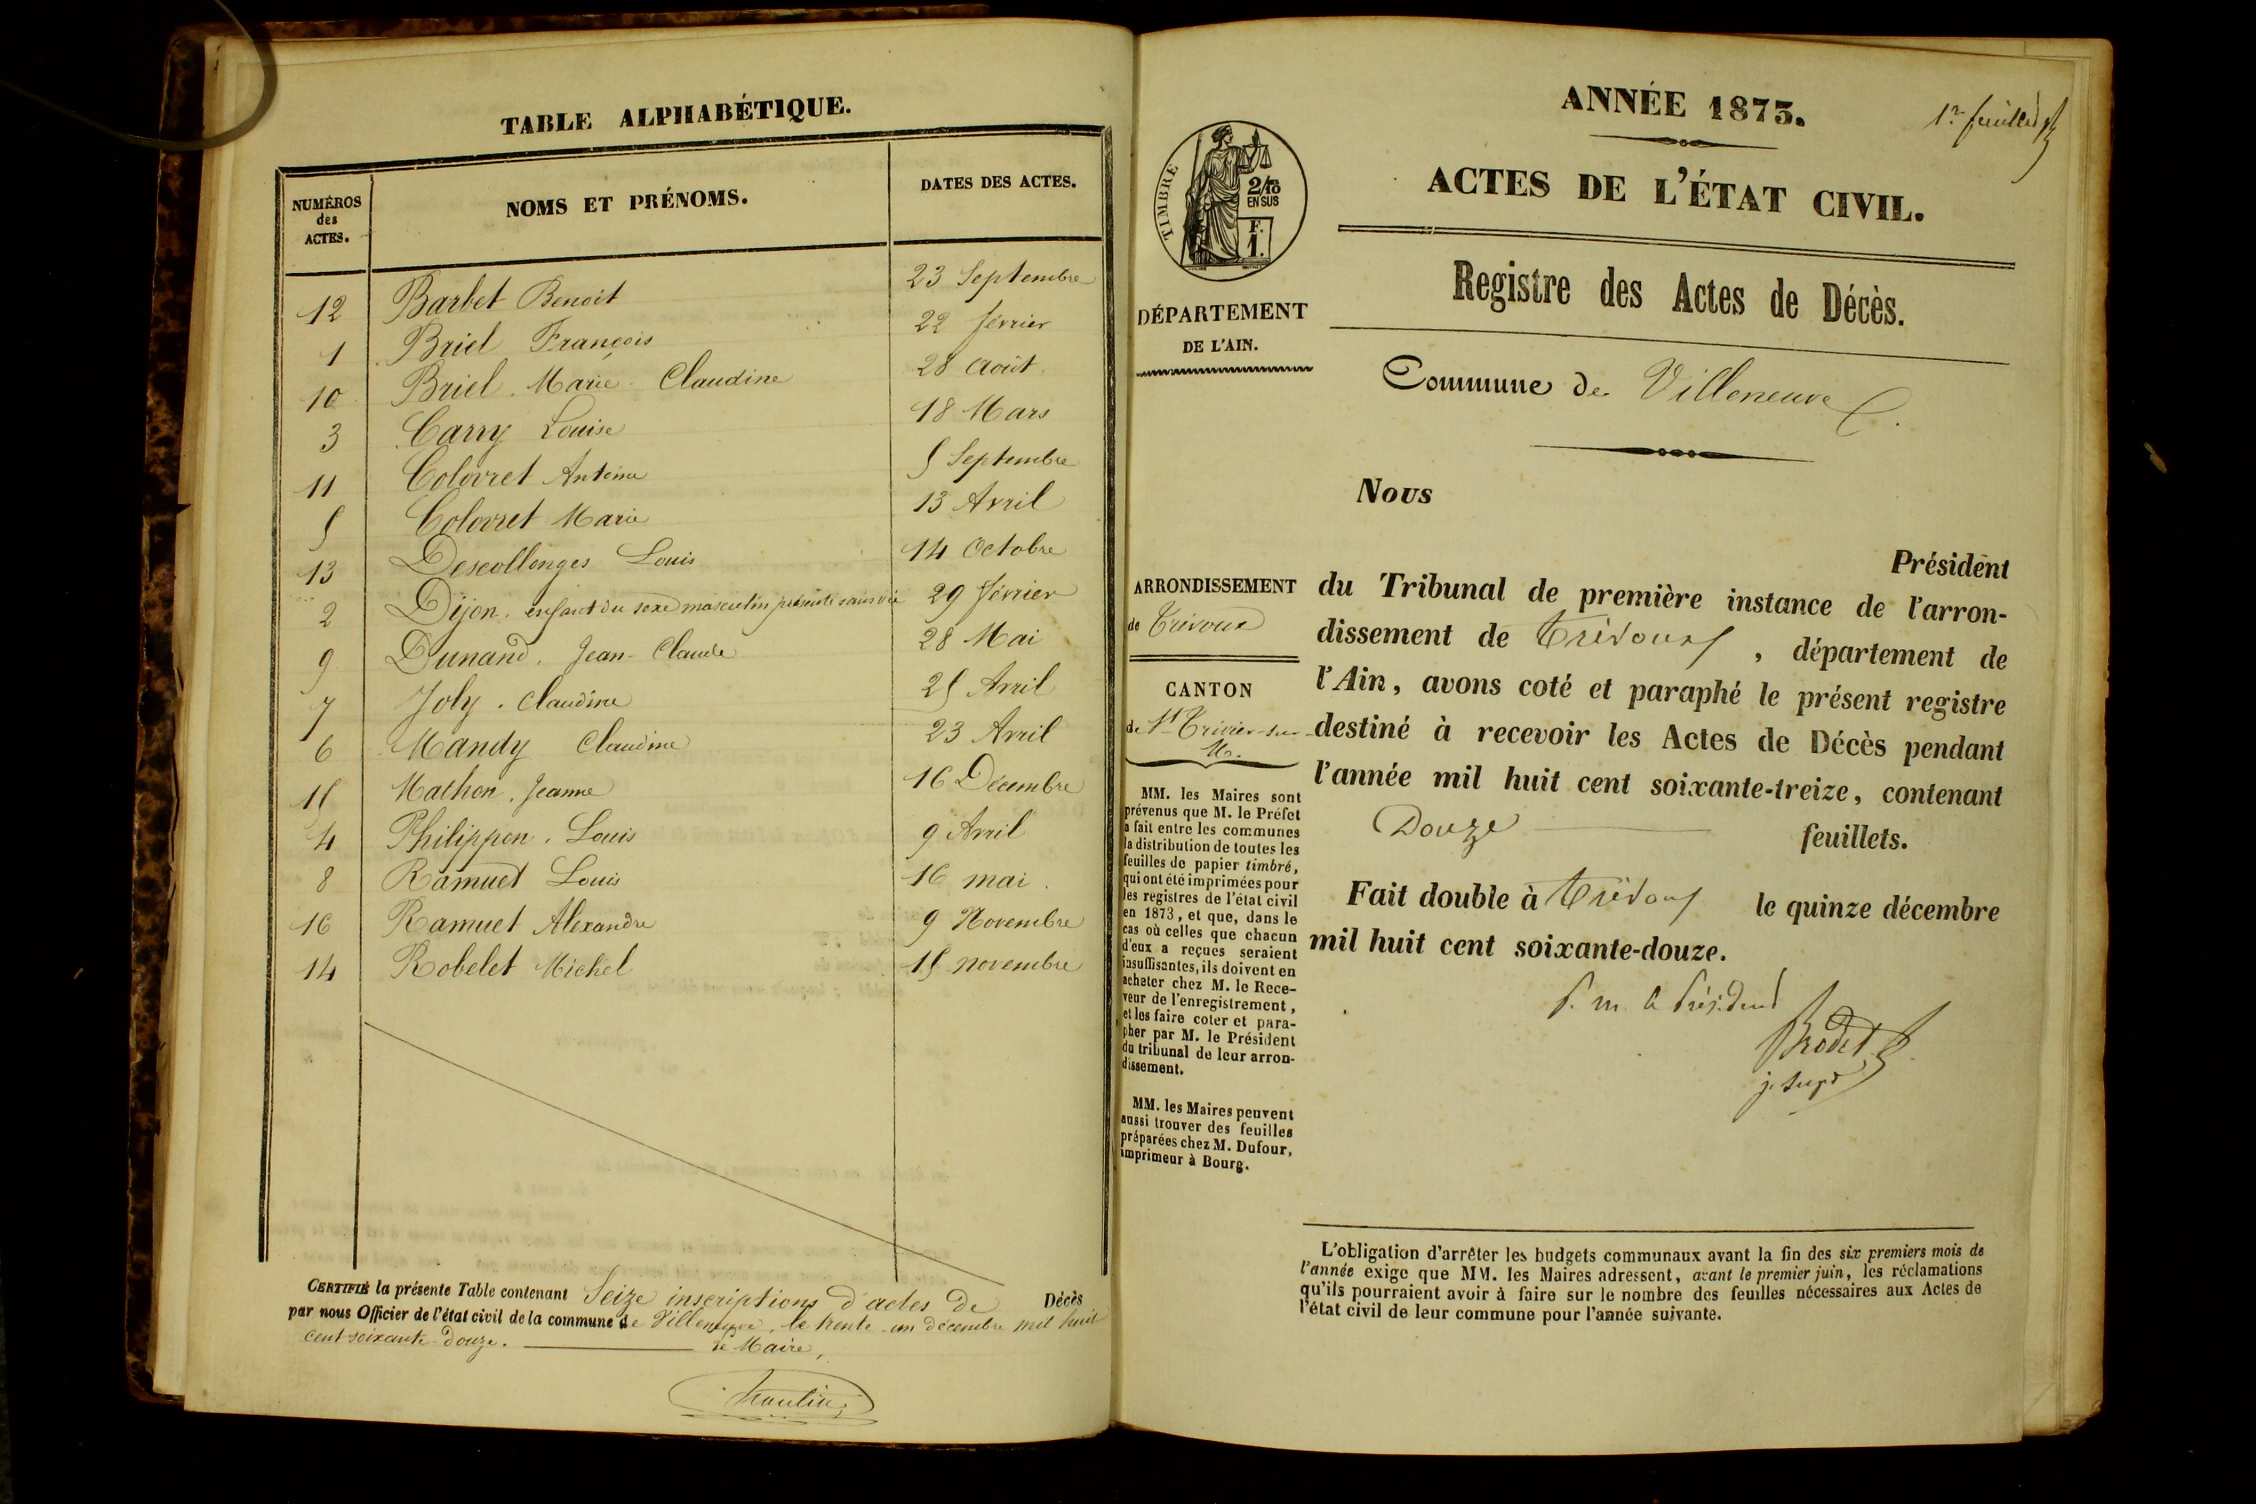 TABLE ALPHABÉTIQUE.
NUMÉROS des ACTES. NOMS ET PRÉNOMS. DATES DES ACTES.
12 Barbet Benoit 23 Septembre
1 Briel François 22 février
10 Briel Marie Claudine 28 Août
3 Carry Louise 18 Mars
11 Colovret Antoine 5 Septembre
5 Colovret Marie 13 Avril
13 Descollonges Louis 14 Octobre
2 Dijon. enfant du sexe masculin présenté sans vie 29 février
9 Dunand. Jean-Claude 28 Mai
7 Joly. Claudine 25 Avril
6 Mandy Claudine 23 Avril
15 Mathon. Jeanne 16 Décembre
4 Philippon. Louis 9 Avril
8 Ramuet Louis 16 mai
16 Ramuet Alexandre 9 Novembre
14 Robelet Michel 15 novembre
CERTIFIÉ la présente Table contenant Seize inscriptions d'actes de Décès
par nous Officier de l'état civil de la commune de Villeneuve, le trente-un décembre mil huit
cent soixante-douze.
le Maire,
ANNÉE 1873.
1er feuillet
ACTES DE L'ÉTAT CIVIL.
TIMBRE
2/10
EN SUS
F.
1.
Registre des Actes de Décès.
DÉPARTEMENT
DE L'AIN.
Commune de Villeneuve
Nous
Président
du Tribunal de première instance de l'arron-
dissement de Trévoux, département de
l'Ain, avons coté et paraphé le présent registre
destiné à recevoir les Actes de Décès pendant
l'année mil huit cent soixante-treize, contenant
Douze feuillets.
Fait double à Trévoux le quinze décembre
mil huit cent soixante-douze.
P. m. le Président
Brodet
j. supt
ARRONDISSEMENT
de Trévoux
CANTON
de St Trivier-sur-
M.
MM. les Maires sont
prévenus que M. le Préfet
a fait entre les communes
la distribution de toutes les
feuilles de papier timbré,
qui ont été imprimées pour
les registres de l'état civil
en 1873, et que, dans le
cas où celles que chacun
d'eux a reçues seraient
insuffisantes, ils doivent en
acheter chez M. le Rece-
veur de l'enregistrement,
et les faire coter et para-
pher par M. le Président
du tribunal de leur arron-
dissement.
MM. les Maires peuvent
aussi trouver des feuilles
préparées chez M. Dufour,
imprimeur à Bourg.
L'obligation d'arrêter les budgets communaux avant la fin des six premiers mois de
l'année exige que MM. les Maires adressent, avant le premier juin, les réclamations
qu'ils pourraient avoir à faire sur le nombre des feuilles nécessaires aux Actes de
l'état civil de leur commune pour l'année suivante.